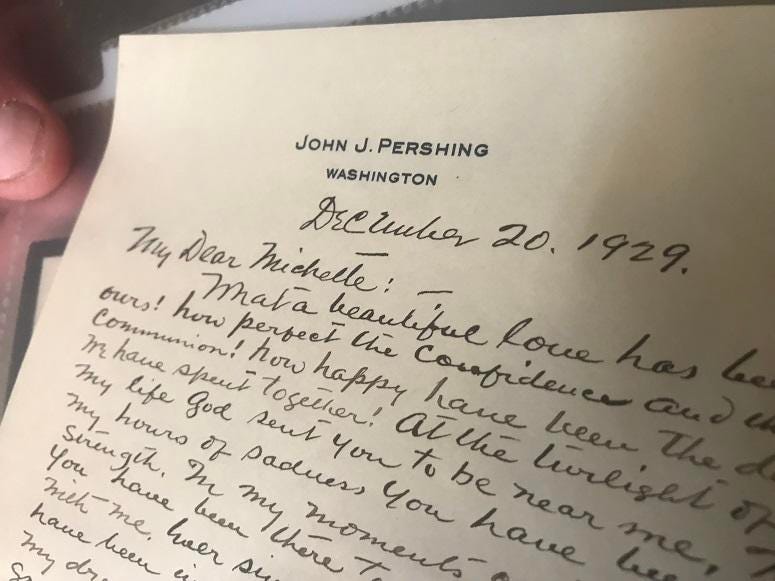 JOHN J. PERSHING
WASHINGTON
December 20. 1929.
My Dear Michelle: —
What a beautiful love has
ours! how perfect the Confidence and
Communion! how happy have been the
We have spent together! At the twilight of
my life God sent you to be near me,
my hours of sadness you have
strength. In my moments
you have been there
with me,
have been
my